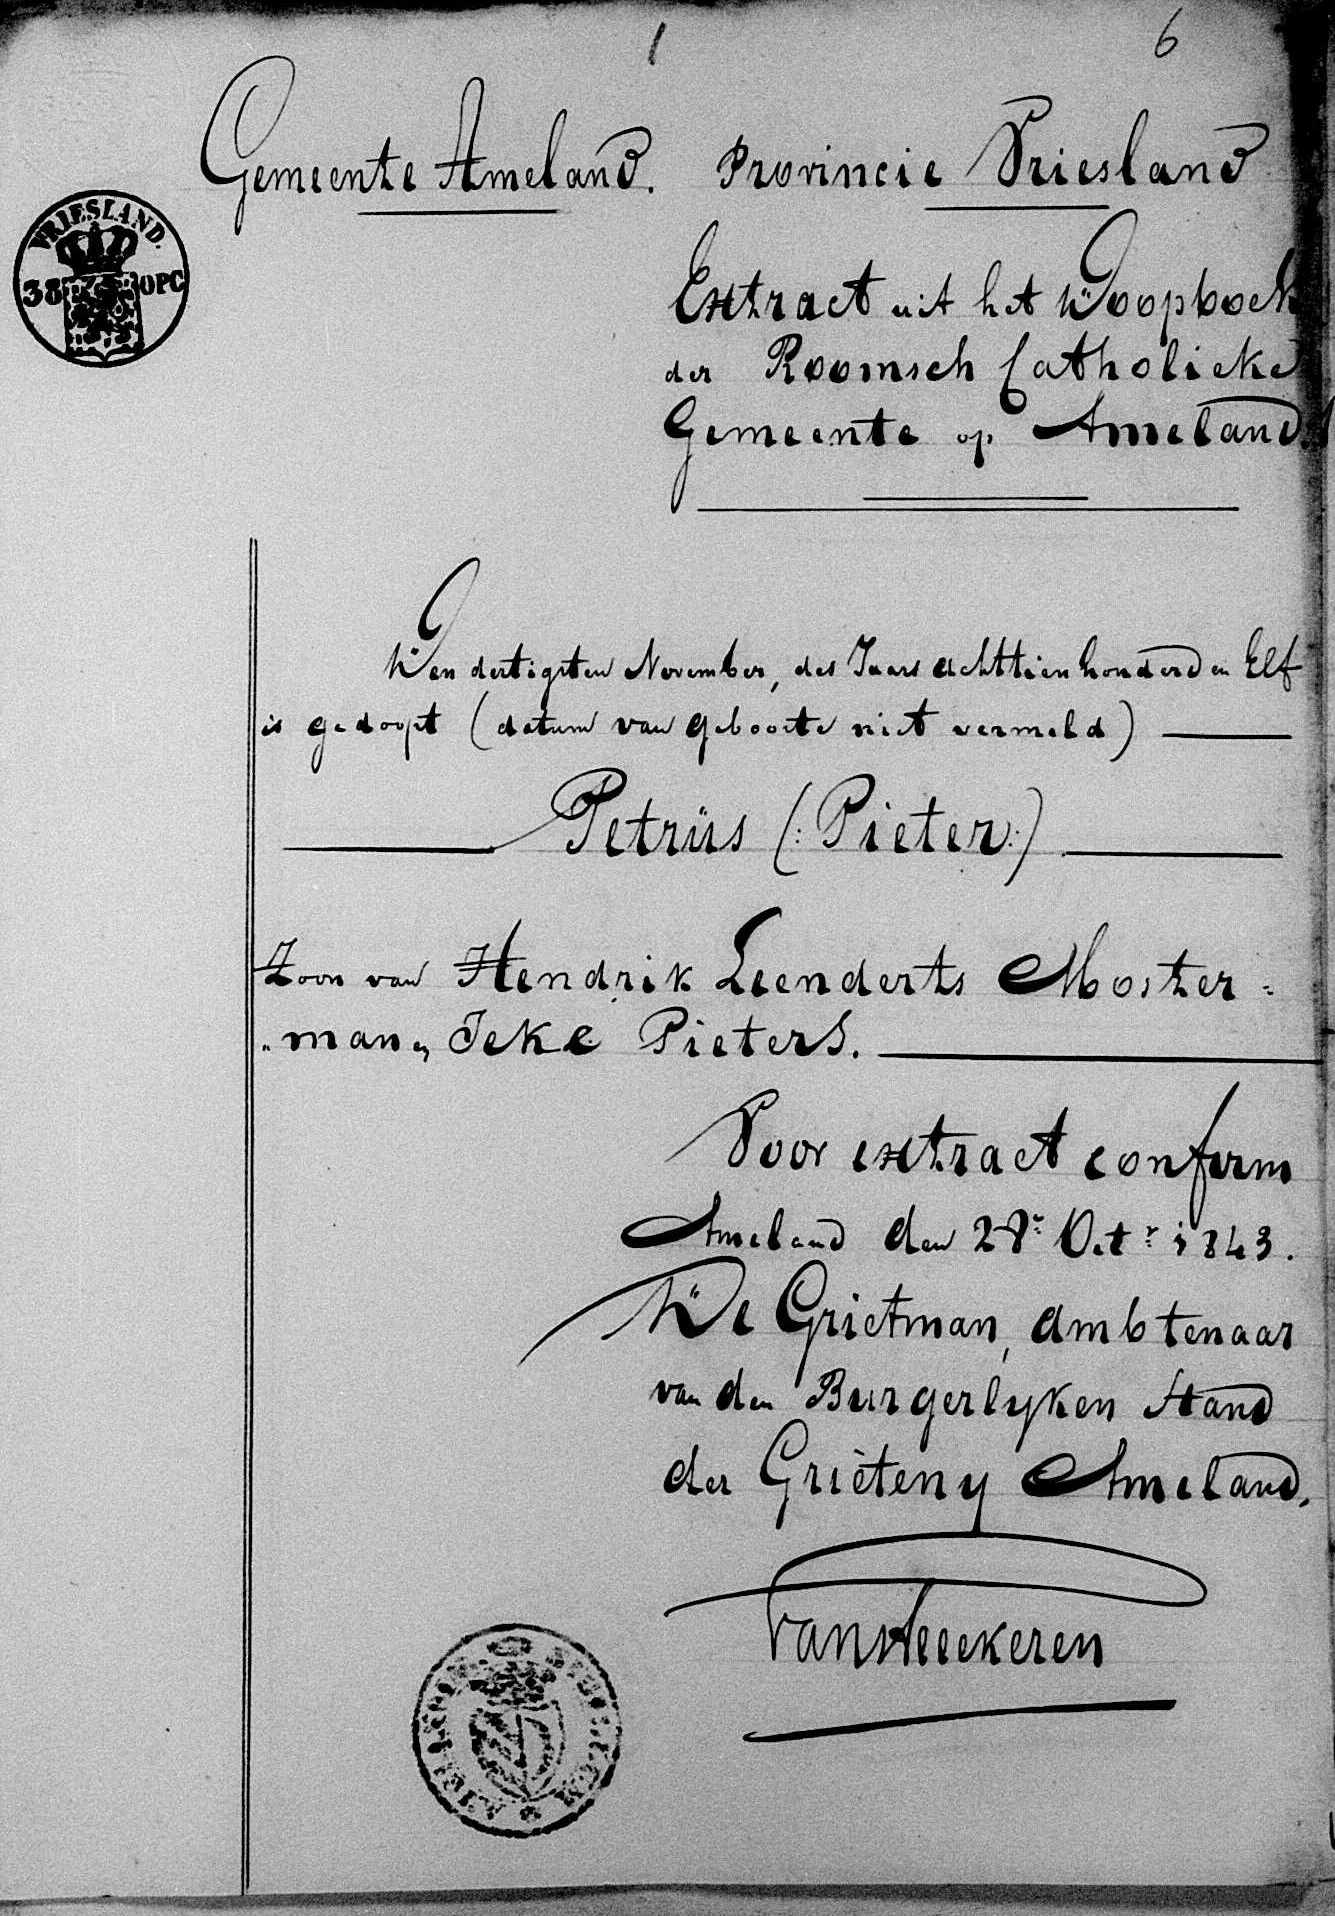 1 6
Gemeente Ameland. Provincie Vriesland
VRIESLAND.
38 OPC
Extract uit het Doopboek
der Roomsch Catholieke
Gemeente op Ameland.
Den dertigsten November, des Jaars achttien honderd en Elf
is gedoopt (datum van geboorte niet vermeld)
Petrus (: Pieter :)
Zoon van Hendrik Leenderts Moster=
"man en Jeke Pieters.
Voor extract conform
Ameland den 28e Octr 1843.
De Grietman, ambtenaar
van den Burgerlyken Stand
der Grieteny Ameland.
van Heeckeren